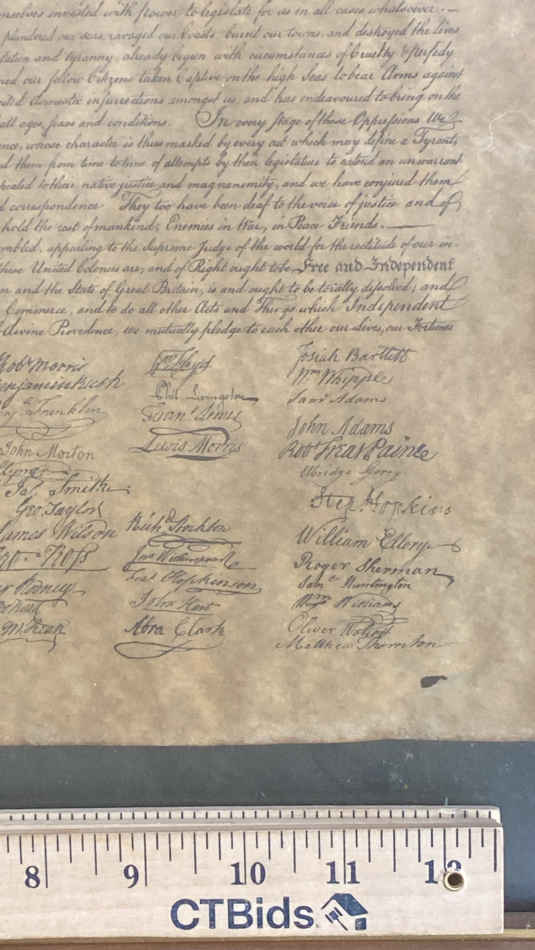 mselves invested with power to legislate for us in all cases whatsoever. —
plundered our seas, ravaged our Coasts, burnt our towns, and destroyed the lives
lation and tyranny, already begun with circumstances of Cruelty & perfidy
ned our fellow Citizens taken Captive on the high Seas to bear Arms against
ited domestic insurrections amongst us, and has endeavoured to bring on the
all ages, sexes and conditions. In every stage of these Oppressions We
ince, whose character is thus marked by every act which may define a Tyrant,
d them from time to time of attempts by their legislature to extend an unwarrant
pealed to their native justice and magnanimity, and we have conjured them
d correspondence They too have been deaf to the voice of justice and of
hold the rest of mankind, Enemies in War, in Peace Friends. —
embled, appealing to the Supreme Judge of the world for the rectitude of our in-
these United Colonies are, and of Right ought to be Free and Independent
en and the State of Great Britain, is and ought to be totally dissolved; and
Commerce, and to do all other Acts and Things which Independent
divine Providence, we mutually pledge to each other our Lives, our Fortunes
Robt Morris
Benjamin Rush
Benja Franklin
John Morton
Clymer
Jas. Smith
Geo. Taylor
James Wilson
Geo. Ross
Rodney
Read
M:Kean
Wm Floyd
Phil. Livingston
Frans. Lewis
Lewis Morris
Richd. Stockton
Jno Witherspoon
Fras. Hopkinson
John Hart
Abra Clark
Josiah Bartlett
Wm. Whipple
Saml Adams
John Adams
Robt Treat Paine
Elbridge Gerry
Step. Hopkins
William Ellery
Roger Sherman
Saml Huntington
Wm Williams
Oliver Wolcott
Matthew Thornton
8 9 10 11 12
CTBids